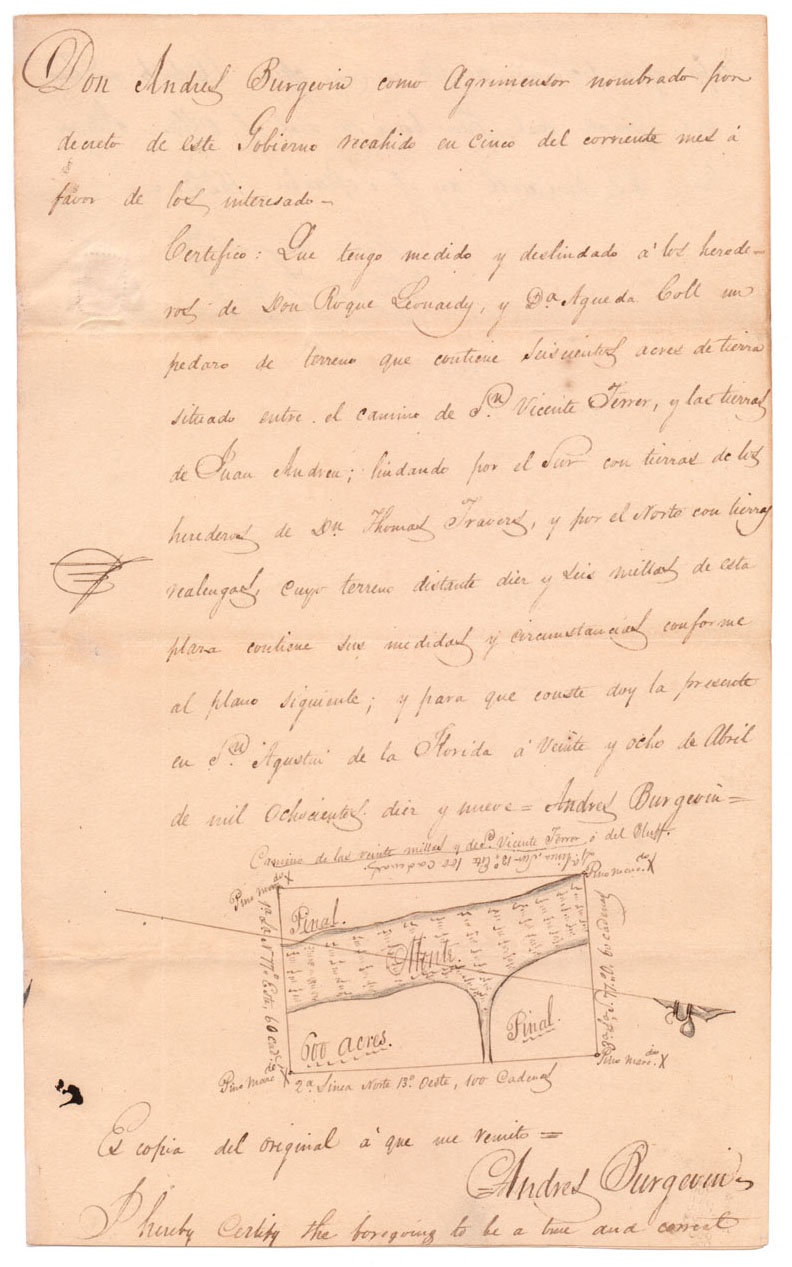 Don Andres Burgevin como Agrimensor nombrado por
decreto de este Gobierno recahido en cinco del corriente mes á
favor de los interesado –
Certifico: Que tengo medido y deslindado á los herede-
ros de Don Roque Leonardy, y Da. Agueda Coll un
pedazo de terreno que contiene seiscientos acres de tierra
situado entre el camino de Sn. Vicente Ferrer, y las tierras
de Juan Andreu; lindando por el Sur con tierras de los
herederos de Dn. Thomas Travers, y por el Norte con tierras
realengas, cuyo terreno distante diez y seis millas de esta
plaza contiene sus medidas y circumstancias conforme
al plano siguiente; y para que conste doy la presente
en Sn. Agustin de la Florida á veinte y ocho de Abril
de mil ochocientos diez y nueve = Andres Burgevin =
Camino de las veinte millas y de Sn. Vicente Ferrer ó del Bluff.
Linea, Sur 13° Este 100 Cadenas
Pino marcdo. X
Pino marcdo. X
Pinal.
Monte.
1a. La. N 77° Este, 60 cads.
3a. La. S. 77° O. 60 cadenas
600 acres.
Pinal.
Pino marcdo. X
Pino marcdo. X
2a. Linea Norte 13° Oeste, 100 Cadenas
Es copia del original á que me remito =
Andres Burgevin
I hereby Certify the foregoing to be a true and correct